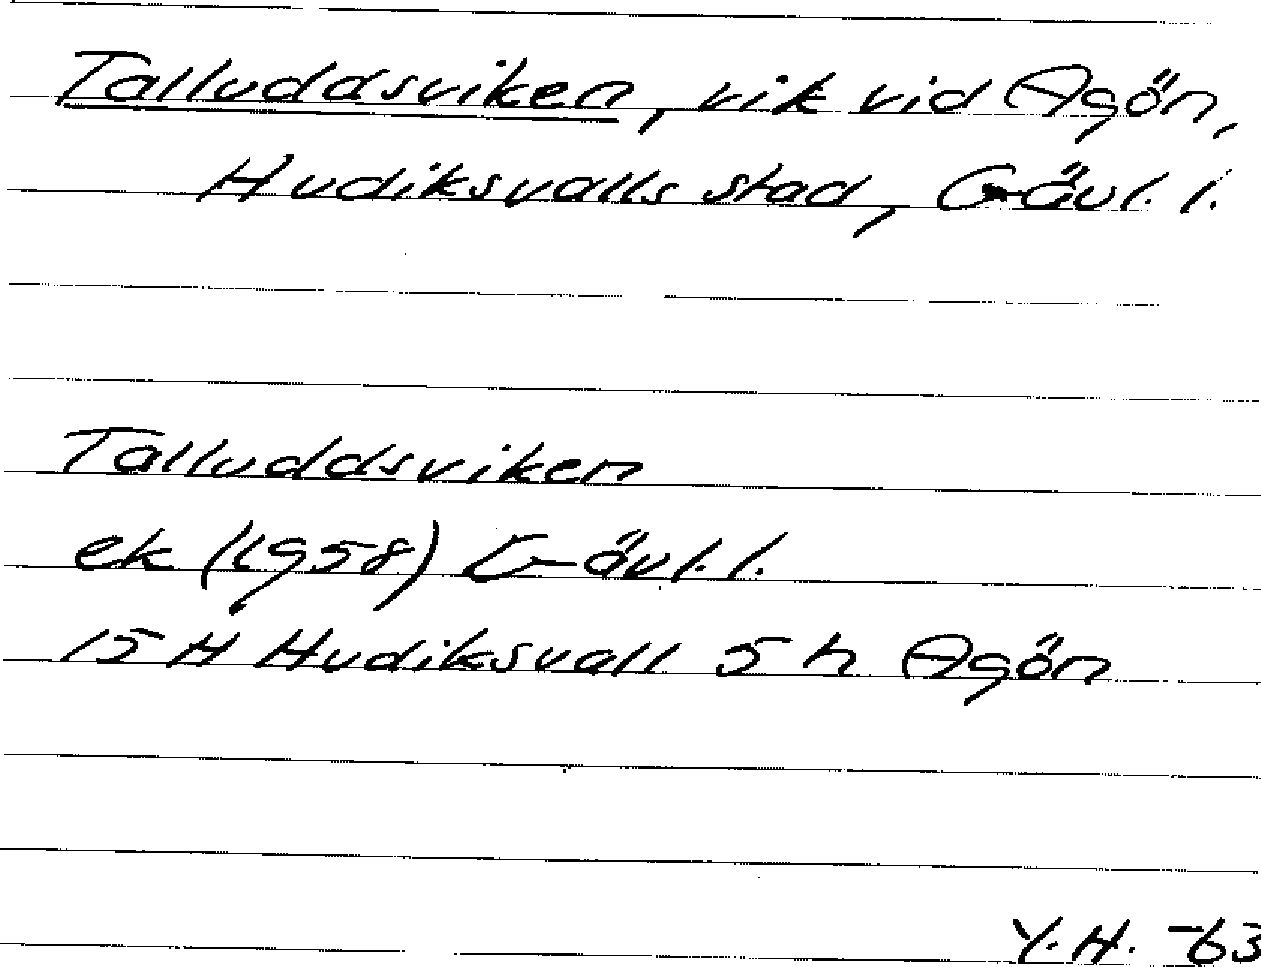 Talluddsviken, vik vid Agön,
Hudiksvalls stad, Gävl. l.
Talluddsviken
ek (1958) Gävl. l.
15 H Hudiksvall 5 h Agön
Y. H. -63